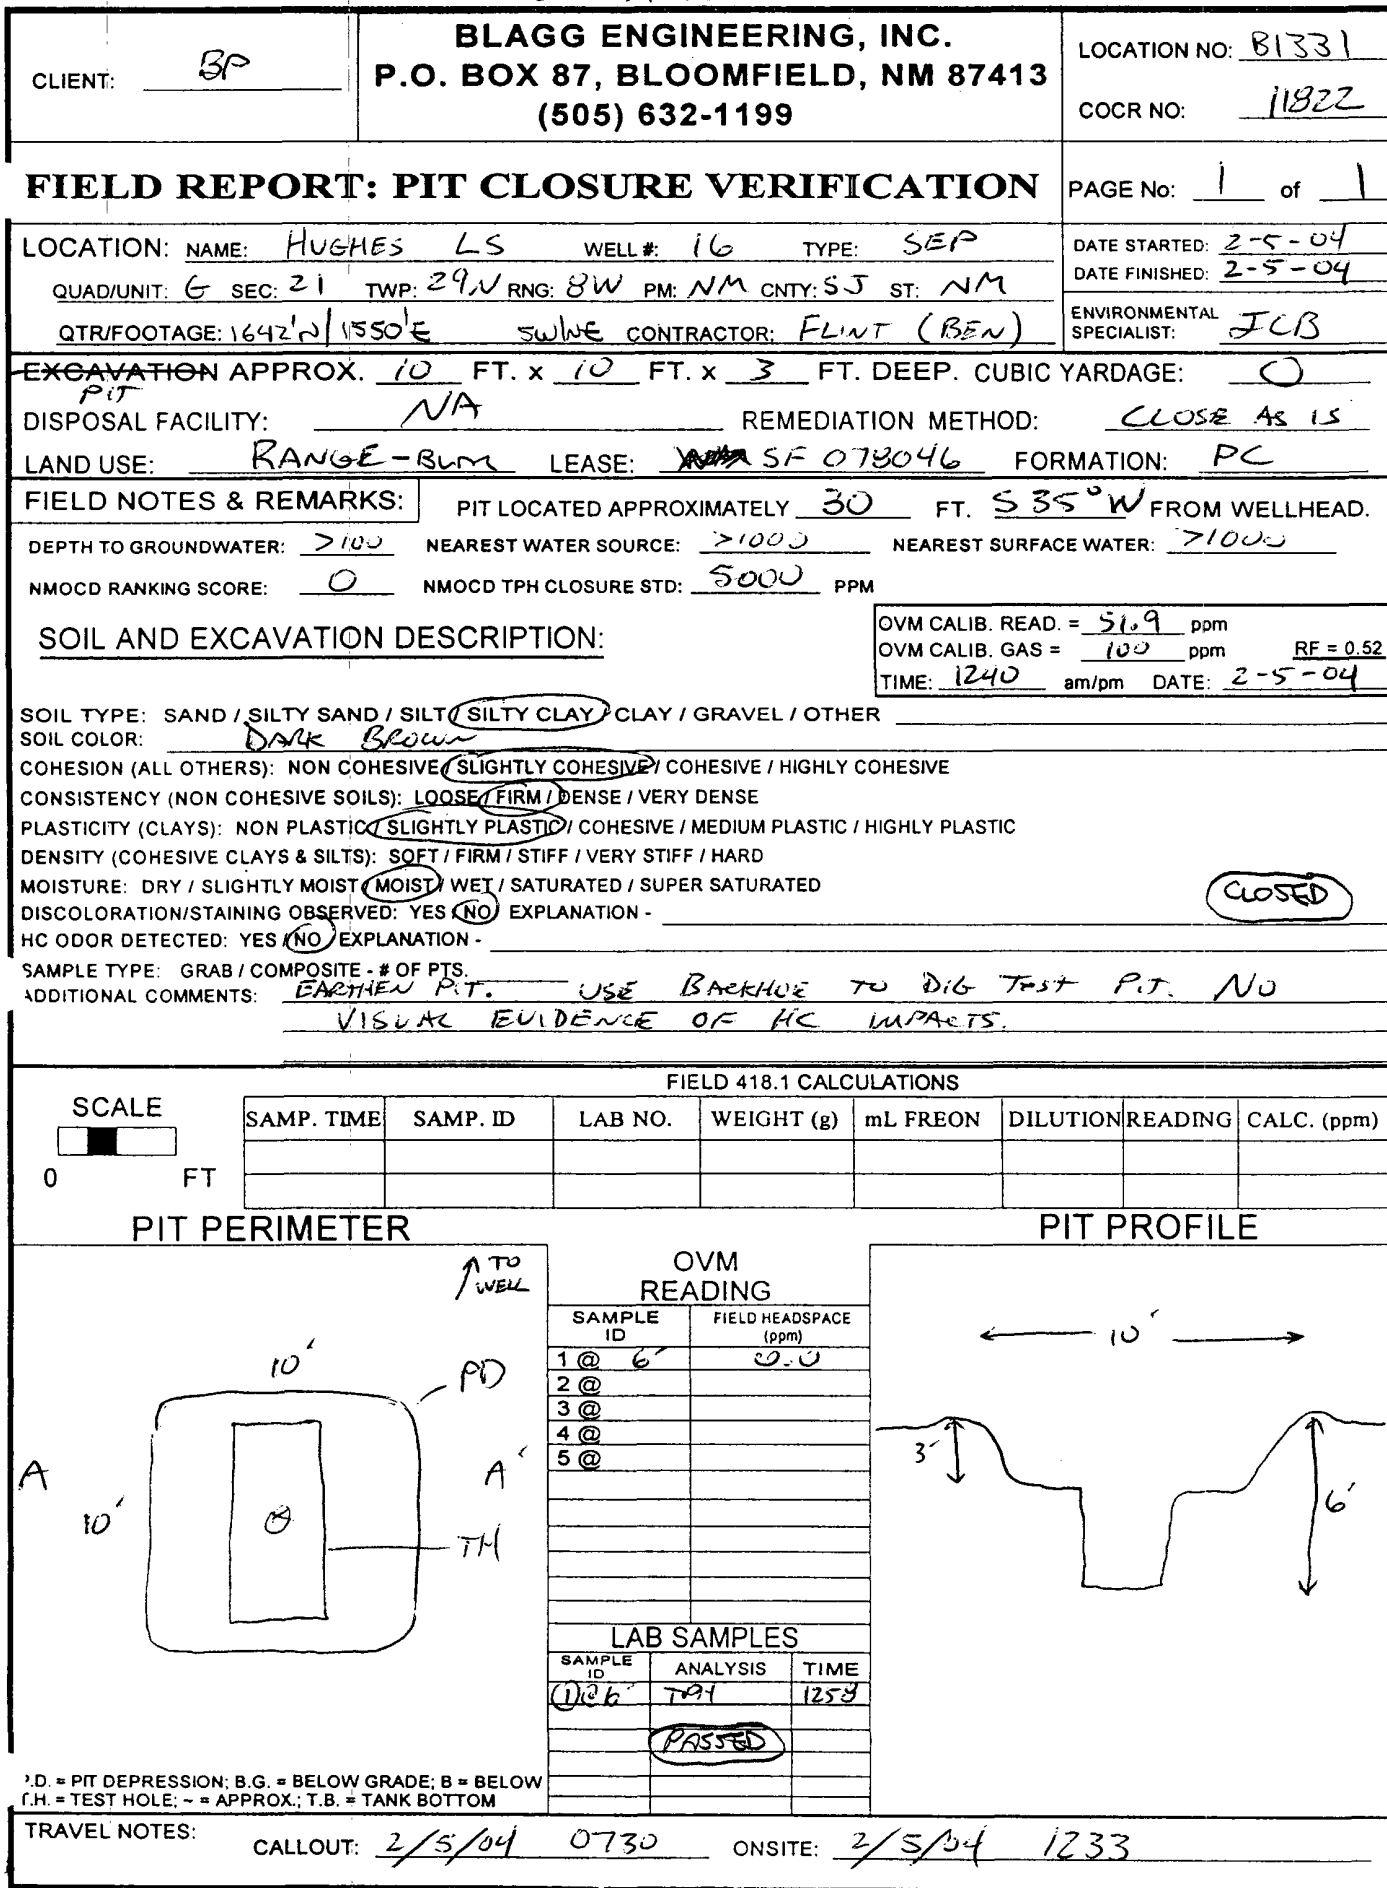 BLAGG ENGINEERING, INC.
P.O. BOX 87, BLOOMFIELD, NM 87413
(505) 632-1199
CLIENT: BP
LOCATION NO: B1331
COCR NO: 11822
FIELD REPORT: PIT CLOSURE VERIFICATION
PAGE No: 1 of 1
LOCATION: NAME: HUGHES LS WELL #: 16 TYPE: SEP
QUAD/UNIT: G SEC: 21 TWP: 29N RNG: 8W PM: NM CNTY: SJ ST: NM
QTR/FOOTAGE: 1642'N/1550'E SW/NE CONTRACTOR: FLINT (BEN)
DATE STARTED: 2-5-04
DATE FINISHED: 2-5-04
ENVIRONMENTAL
SPECIALIST: JCB
EXCAVATION APPROX. 10 FT. x 10 FT. x 3 FT. DEEP. CUBIC YARDAGE: 0
PIT
DISPOSAL FACILITY: NA REMEDIATION METHOD: CLOSE AS IS
LAND USE: RANGE-BLM LEASE: SF 078046 FORMATION: PC
FIELD NOTES & REMARKS: PIT LOCATED APPROXIMATELY 30 FT. S 35° W FROM WELLHEAD.
DEPTH TO GROUNDWATER: >100 NEAREST WATER SOURCE: >1000 NEAREST SURFACE WATER: >1000
NMOCD RANKING SCORE: 0 NMOCD TPH CLOSURE STD: 5000 PPM
SOIL AND EXCAVATION DESCRIPTION:
OVM CALIB. READ. = 51.9 ppm
OVM CALIB. GAS = 100 ppm RF = 0.52
TIME: 1240 am/pm DATE: 2-5-04
SOIL TYPE: SAND / SILTY SAND / SILT / SILTY CLAY / CLAY / GRAVEL / OTHER
SOIL COLOR: DARK BROWN
COHESION (ALL OTHERS): NON COHESIVE / SLIGHTLY COHESIVE / COHESIVE / HIGHLY COHESIVE
CONSISTENCY (NON COHESIVE SOILS): LOOSE / FIRM / DENSE / VERY DENSE
PLASTICITY (CLAYS): NON PLASTIC / SLIGHTLY PLASTIC / COHESIVE / MEDIUM PLASTIC / HIGHLY PLASTIC
DENSITY (COHESIVE CLAYS & SILTS): SOFT / FIRM / STIFF / VERY STIFF / HARD
MOISTURE: DRY / SLIGHTLY MOIST / MOIST / WET / SATURATED / SUPER SATURATED
CLOSED
DISCOLORATION/STAINING OBSERVED: YES / NO EXPLANATION -
HC ODOR DETECTED: YES / NO EXPLANATION -
SAMPLE TYPE: GRAB / COMPOSITE - # OF PTS.
ADDITIONAL COMMENTS: EARTHEN PIT. USE BACKHOE TO DIG TEST PIT. NO
VISUAL EVIDENCE OF HC IMPACTS.
FIELD 418.1 CALCULATIONS
SCALE
0 FT
SAMP. TIME SAMP. ID LAB NO. WEIGHT (g) mL FREON DILUTION READING CALC. (ppm)
PIT PERIMETER
TO
WELL
10'
PD
A A'
10'
TH
OVM
READING
SAMPLE
ID
FIELD HEADSPACE
(ppm)
1 @ 6' 0.0
2 @
3 @
4 @
5 @
LAB SAMPLES
SAMPLE
ID
ANALYSIS TIME
①@6' TPH 1258
PASSED
PIT PROFILE
10'
3'
6'
P.D. = PIT DEPRESSION; B.G. = BELOW GRADE; B = BELOW
T.H. = TEST HOLE; ~ = APPROX.; T.B. = TANK BOTTOM
TRAVEL NOTES: CALLOUT: 2/5/04 0730 ONSITE: 2/5/04 1233